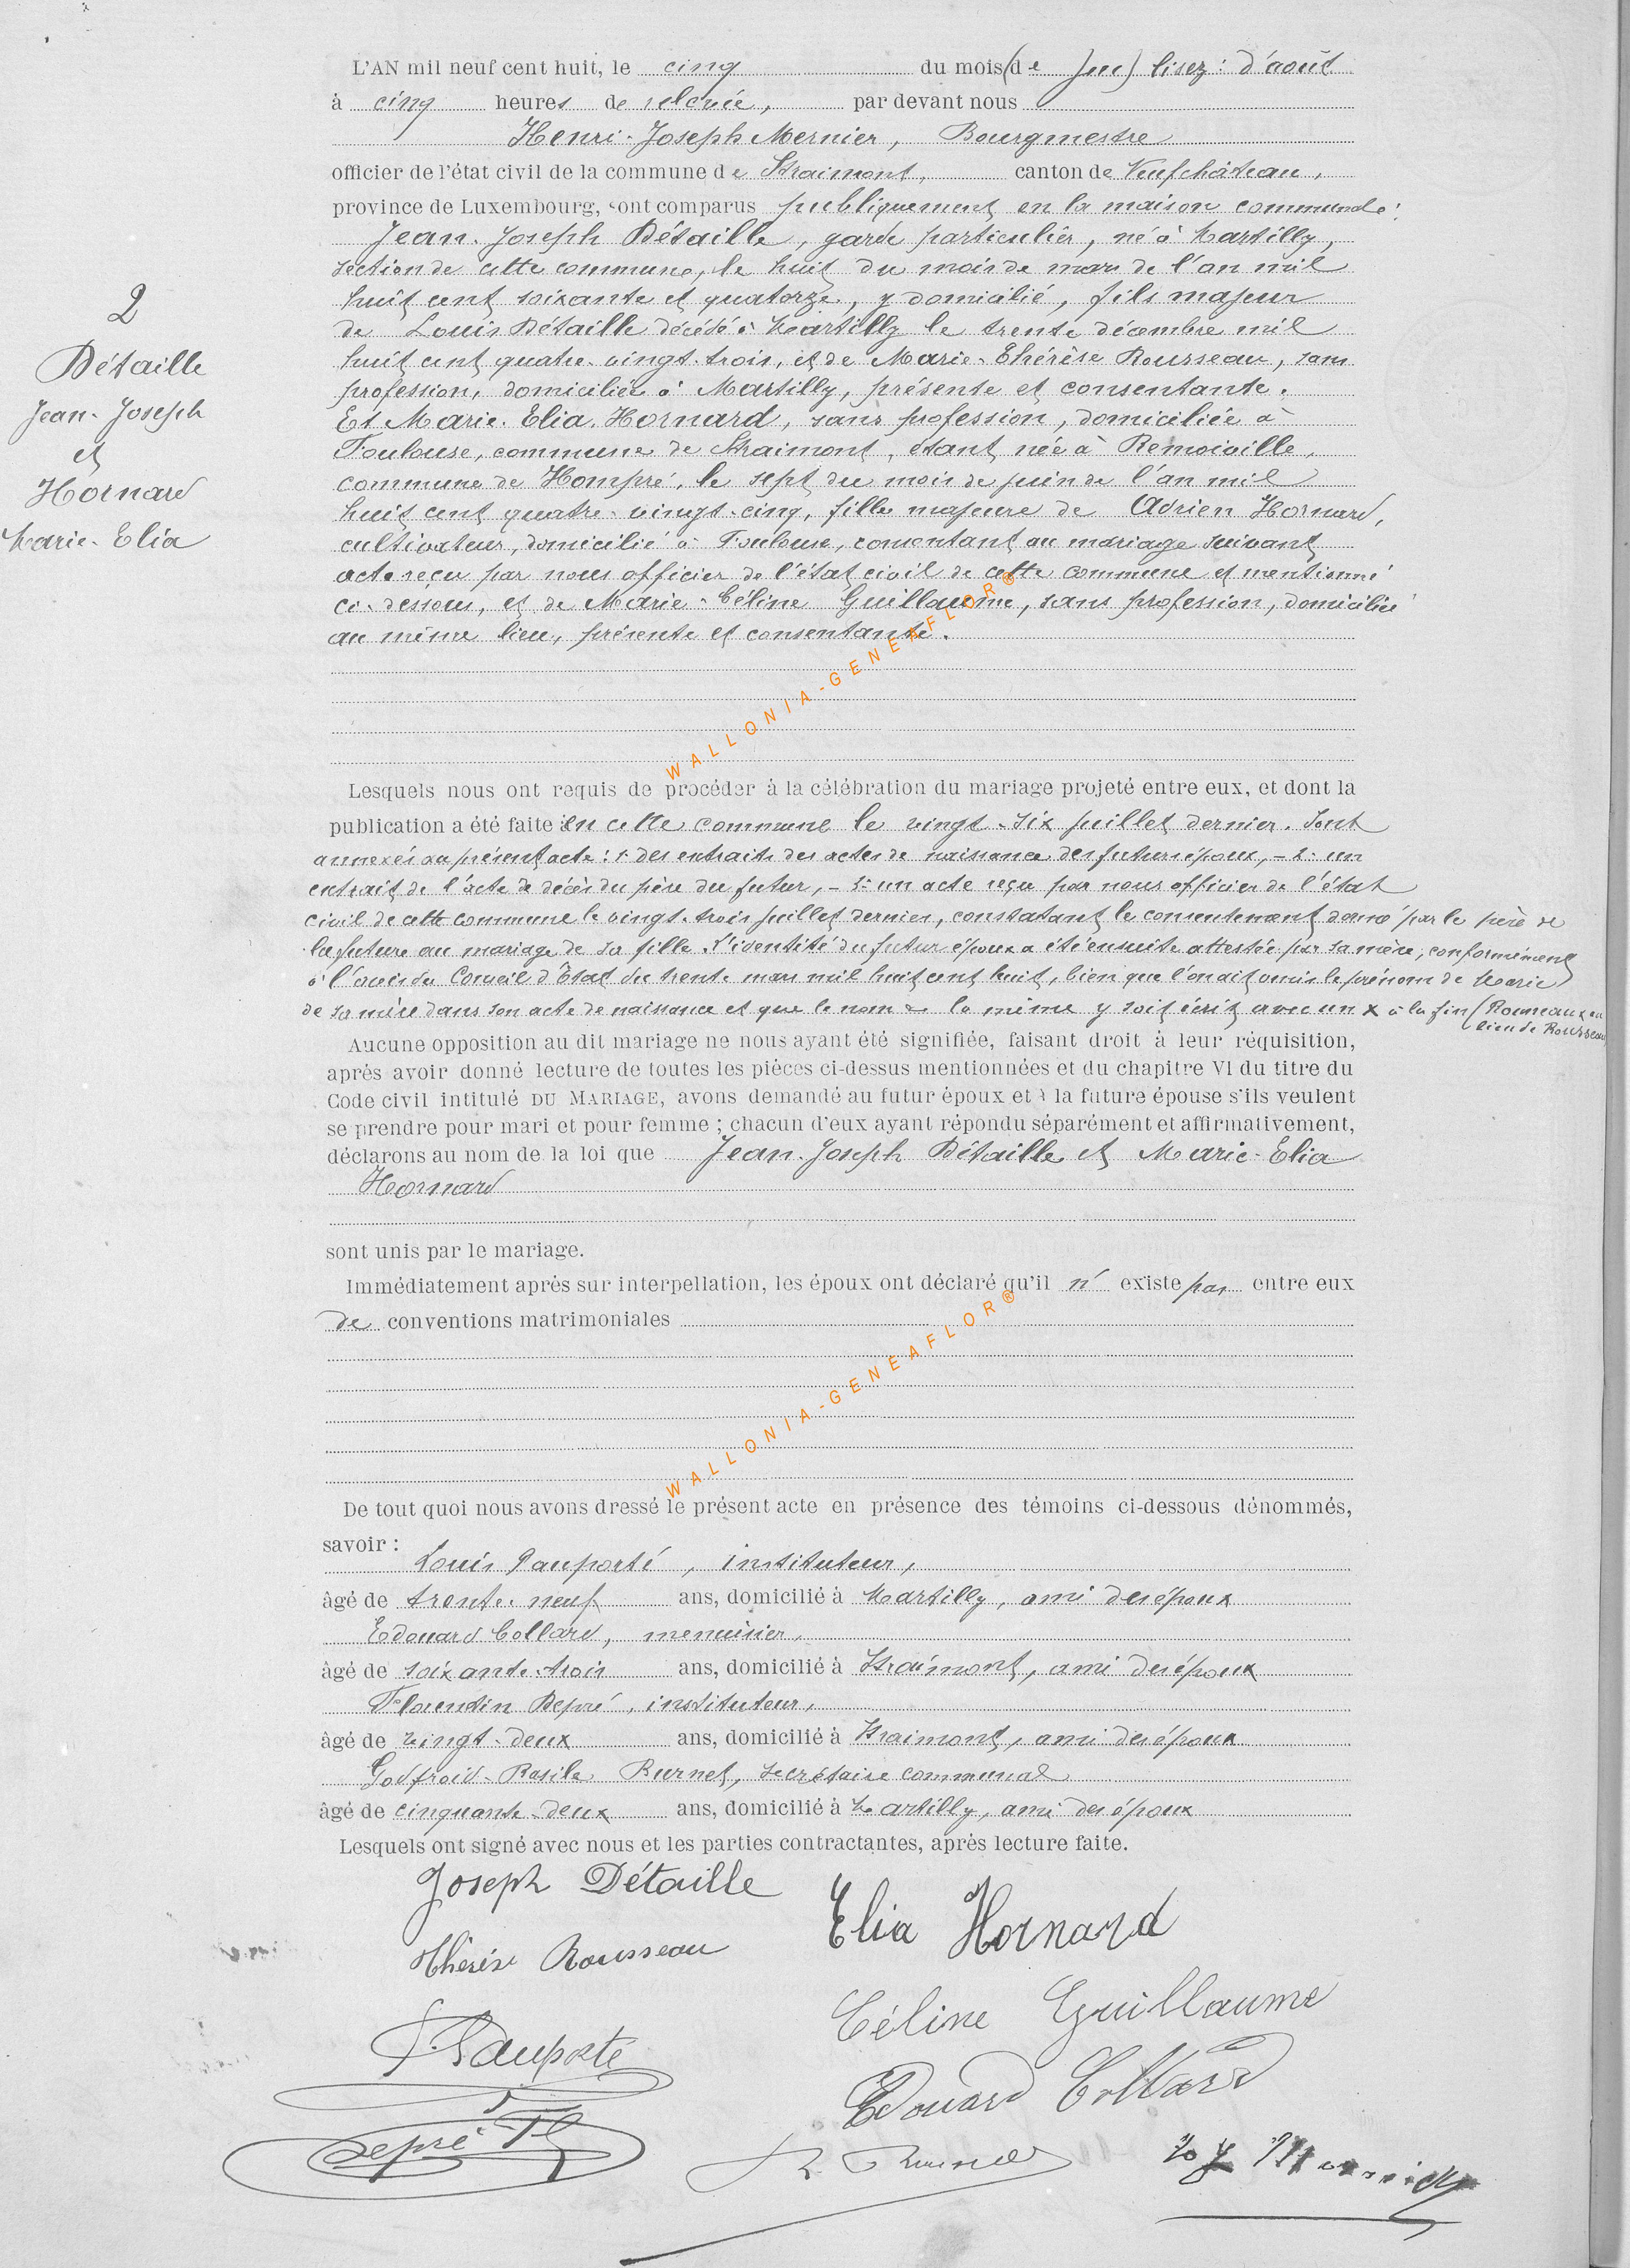 L'AN mil neuf cent huit, le cinq du mois (de Jui) lisez : d'août
à cinq heures de relevée, par devant nous
Henri-Joseph Mernier, Bourgmestre
officier de l'état civil de la commune de Straimont, canton de Neufchâteau,
province de Luxembourg, sont comparus publiquement en la maison communale :
Jean-Joseph Détaille, garde particulier, né à Martilly,
section de cette commune, le huit du mois de mars de l'an mil
huit cent soixante et quatorze, y domicilié, fils majeur
de Louis Détaille décédé à Martilly le trente décembre mil
huit cent quatre-vingt-trois, et de Marie-Thérèse Rousseau, sans
profession, domiciliée à Martilly, présente et consentante.
Et Marie-Elia Hornard, sans profession, domiciliée à
Toulouse, commune de Straimont, étant née à Remoiville,
commune de Hompré, le sept du mois de juin de l'an mil
huit cent quatre-vingt-cinq, fille majeure de Adrien Hornard,
cultivateur, domicilié à Toulouse, consentant au mariage suivant
acte reçu par nous officier de l'état civil de cette commune et mentionné
ci-dessous, et de Marie-Céline Guillaume, sans profession, domiciliée
au même lieu, présente et consentante.
2
Détaille
Jean-Joseph
et
Hornard
Marie-Elia
Lesquels nous ont requis de procéder à la célébration du mariage projeté entre eux, et dont la
publication a été faite en cette commune le vingt-six juillet dernier. Sont
annexés au présent acte : 1° des extraits des actes de naissance des futurs époux, - 2° un
extrait de l'acte de décès du père du futur, - 3° un acte reçu par nous officier de l'état
civil de cette commune le vingt-trois juillet dernier, constatant le consentement donné par le père de
la future au mariage de sa fille. L'identité du futur époux a été ensuite attestée par sa mère, conformément
à l'avis du Conseil d'État du trente mars mil huit cent huit, bien que l'on ait omis le prénom de Marie
de sa mère dans son acte de naissance et que le nom de la même y soit écrit avec un x à la fin (Rousseaux au
lieu de Rousseau
Aucune opposition au dit mariage ne nous ayant été signifiée, faisant droit à leur réquisition,
après avoir donné lecture de toutes les pièces ci-dessus mentionnées et du chapitre VI du titre du
Code civil intitulé DU MARIAGE, avons demandé au futur époux et à la future épouse s'ils veulent
se prendre pour mari et pour femme ; chacun d'eux ayant répondu séparément et affirmativement,
déclarons au nom de la loi que Jean-Joseph Détaille et Marie-Elia
Hornard
sont unis par le mariage.
Immédiatement après sur interpellation, les époux ont déclaré qu'il n' existe pas entre eux
de conventions matrimoniales
De tout quoi nous avons dressé le présent acte en présence des témoins ci-dessous dénommés,
savoir :
Louis Pauporté, instituteur,
âgé de trente-neuf ans, domicilié à Martilly, ami des époux
Edouard Collard, menuisier,
âgé de soixante-trois ans, domicilié à Straimont, ami des époux
Florentin Depré, instituteur,
âgé de vingt-deux ans, domicilié à Straimont, ami des époux
Godfroid-Basile Burnet, secrétaire communal
âgé de cinquante-deux ans, domicilié à Martilly, ami des époux
Lesquels ont signé avec nous et les parties contractantes, après lecture faite.
Joseph Détaille
Elia Hornard
Thérèse Rousseau
Céline Guillaume
L. Pauporté
Edouard Collard
Depré Fl
WALLONIA-GENEAFLOR®
WALLONIA-GENEAFLOR®